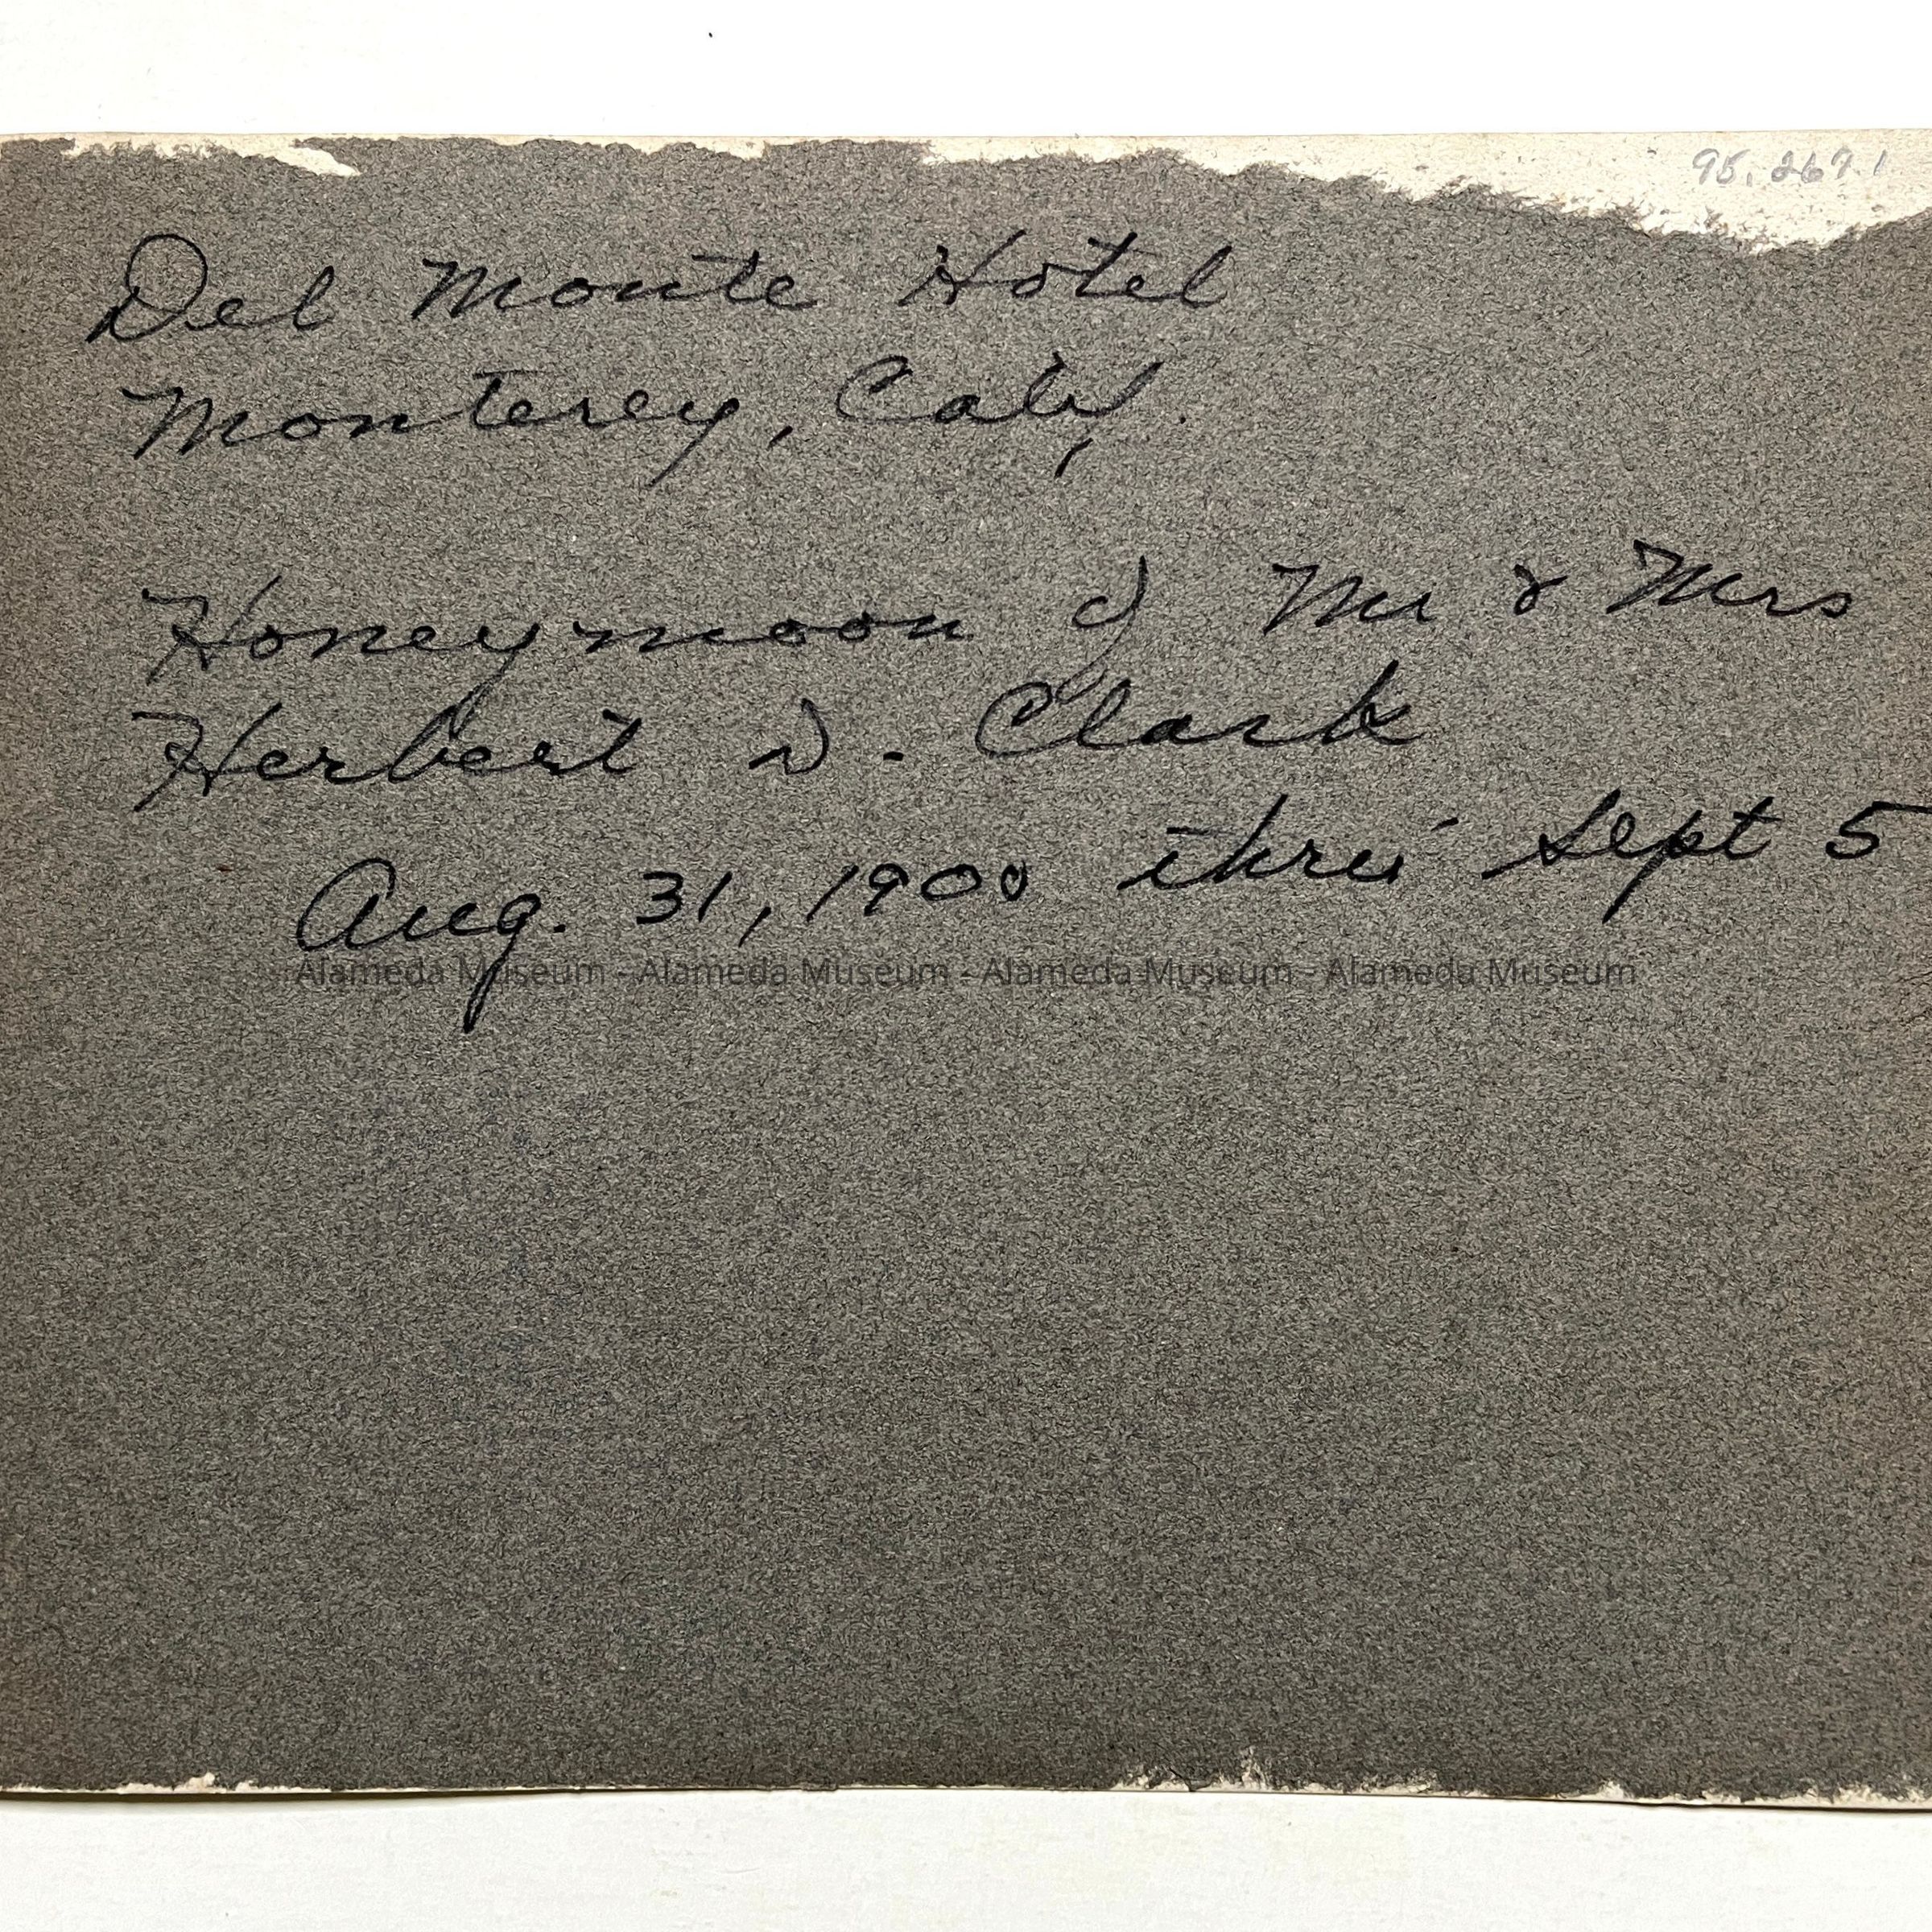 95.267.1
Del Monte Hotel
Monterey, Calif.
Honeymoon of Mr & Mrs
Herbert D. Clark
Aug. 31, 1900 thru Sept 5
Alameda Museum - Alameda Museum - Alameda Museum - Alameda Museum